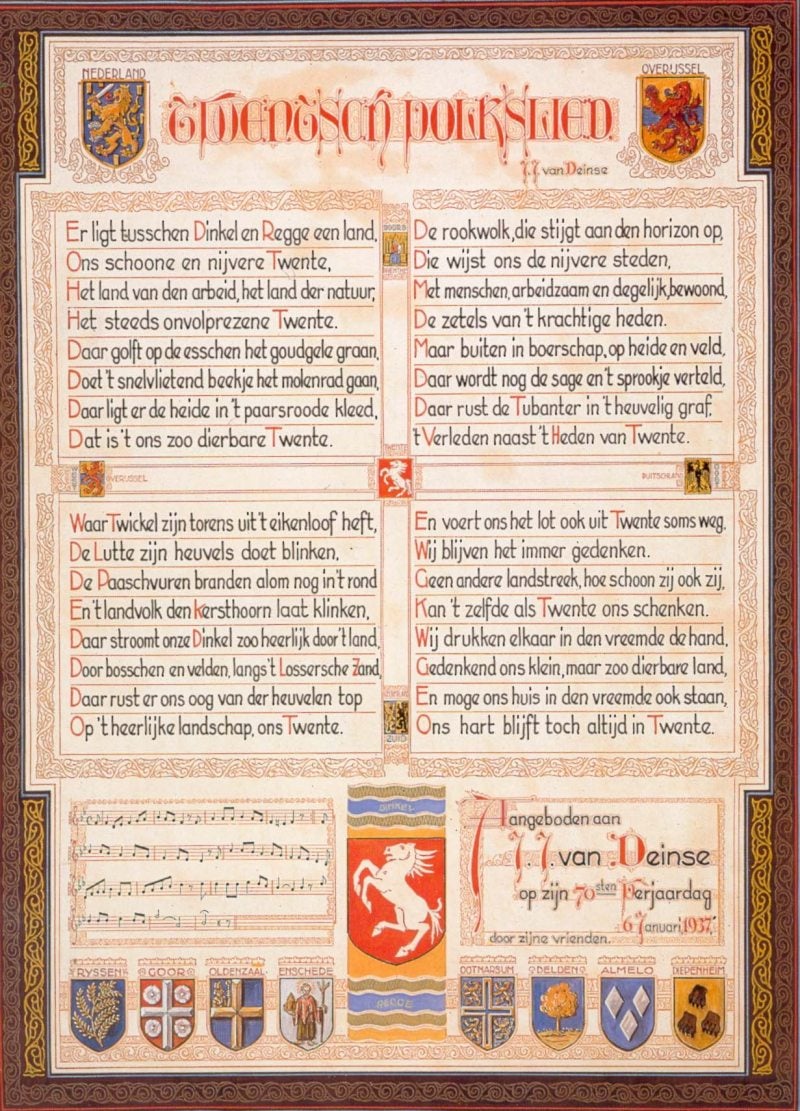 NEDERLAND
OVERIJSSEL
TWENTSCH VOLKSLIED
J.J. van Deinse
Er ligt tusschen Dinkel en Regge een land,
Ons schoone en nijvere Twente,
Het land van den arbeid, het land der natuur,
Het steeds onvolprezene Twente.
Daar golft op de esschen het goudgele graan,
Doet 't snelvlietend beekje het molenrad gaan,
Daar ligt er de heide in 't paarsroode kleed,
Dat is 't ons zoo dierbare Twente.
NOORD
DRENTHE
De rookwolk, die stijgt aan den horizon op,
Die wijst ons de nijvere steden,
Met menschen, arbeidzaam en degelijk, bewoond,
De zetels van 't krachtige heden.
Maar buiten in boerschap, op heide en veld,
Daar wordt nog de sage en 't sprookje verteld,
Daar rust de Tubanter in 't heuvelig graf,
't Verleden naast 't Heden van Twente.
WEST
OVERIJSSEL
TWENTE
DUITSCHLAND
OOST
Waar Twickel zijn torens uit 't eikenloof heft,
De Lutte zijn heuvels doet blinken,
De Paaschvuren branden alom nog in 't rond
En 't landvolk den kersthoorn laat klinken,
Daar stroomt onze Dinkel zoo heerlijk door 't land,
Door bosschen en velden, langs 't Lossersche Zand,
Daar rust er ons oog van der heuvelen top
Op 't heerlijke landschap, ons Twente.
En voert ons het lot ook uit Twente soms weg,
Wij blijven het immer gedenken.
Geen andere landstreek, hoe schoon zij ook zij,
Kan 't zelfde als Twente ons schenken.
Wij drukken elkaar in den vreemde de hand,
Gedenkend ons klein, maar zoo dierbare land,
En moge ons huis in den vreemde ook staan,
Ons hart blijft toch altijd in Twente.
GELDERLAND
ZUID
DINKEL
REGGE
Aangeboden aan
J.J. van Deinse
op zijn 70sten Verjaardag
6 Januari, 1937,
door zijne vrienden.
RYSSEN
GOOR
OLDENZAAL
ENSCHEDE
OOTMARSUM
DELDEN
ALMELO
DIEPENHEIM